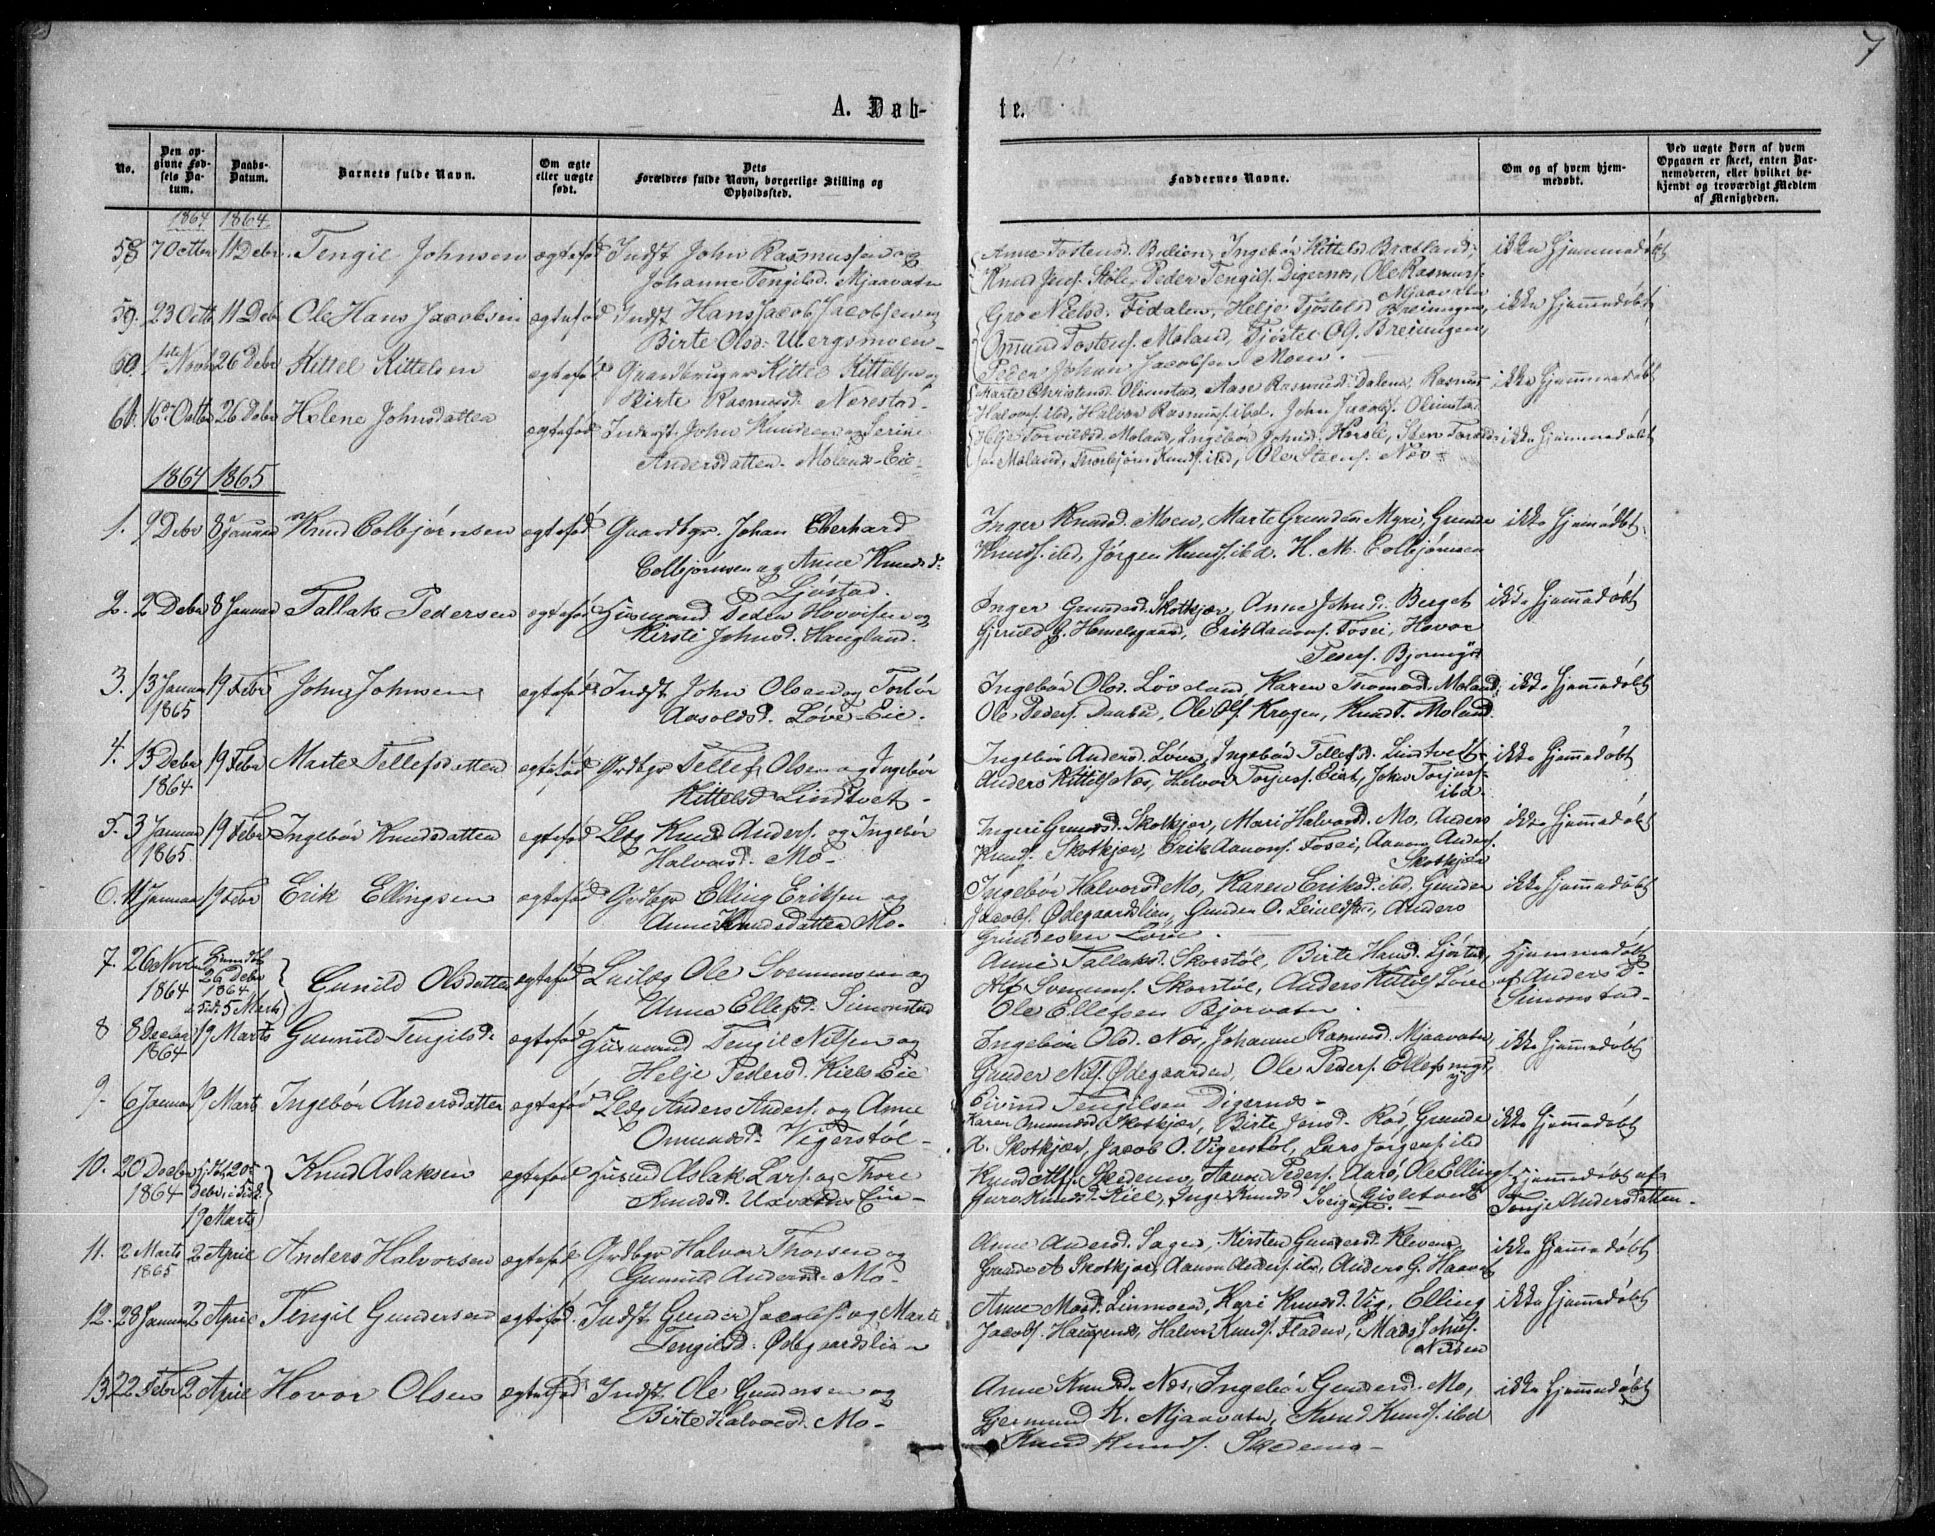 7
A. Døb-
te.
No.
Den op-
givne Fød-
sels Da-
tum.
Daabs-
Datum.
Barnets fulde Navn.
Om ægte
eller uægte
født.
Dets
Forældres fulde Navn, borgerlige Stilling og
Opholdssted.
Faddernes Navne.
Om og af hvem hjem-
medøbt.
Ved uægte Børn af hvem
Opgaven er skeet, enten Bar-
nemoderen, eller hvilket be-
kjendt og troværdigt Medlem
af Menigheden.
1864 1864
58 7 Octbr 11 Debr. Tengil Johnsen ægtefød Indst John Rasmussen og
Johanne Tengilsd. Mjaavatn
Anne Tostensd. Ingebør Kittelsd. Bratland,
Knud Jens. Peder Tengils. Digernes, Ole Rasmuss.
Mjaavatn
ikke hjemmedøbt
59. 23 Octb 11 Deb Ole Hans Jacobsen ægtefød Indst Hans Jacob Jacobsen og
Birte Olsd. Ubergsmoen
Gro Nielsd. Fidalen, Helje Tjøstelsd Breiningen,
Omund Tostens. Moland, Tjøstel O. Breiningen,
Peder Johan Jacobsen Moen.
ikke hjemmedøbt
60. 1ste Novbr 26 Debr Kittel Kittelsen ægtefød Gaardbruger Kittel Kittelsen og
Birte Rasmusd. Nærestad
Marte Christensd. Olimstad, Aase Rasmusd. Dalene, Rasmus
Halvors. ibd, Halvor Rasmuss. ibd. John Jacobs. Olimstad
ikke hjemmedøbt
61. 16de Octbr 26 Debr Helene Johnsdatter ægtefød Inderst John Knudsen og Serine
Andersdatter. Molands-Eie
Helje Torvildsd. Moland, Ingebør Johnsd. Hørsli, Sten
Moland, Thorbjørn Knuds. ibd, Ole Steens. Næs
ikke hjemmedøbt
1864 1865
1. 9 Debr 8 Januar Knud Colbjørnsen ægtefød Gaardbgr. Johan Eberhard
Colbjørnsen og Anne Knudsd.
Ljøstad.
Inger Knudsd. Moen, Marte Grundesd. Myre, Grunde
Knuds. ibd, Jørgen Knuds. ibd. K. M. Colbjørnsen
ikke hjemmedøbt.
2. 2 Debr 8 Januar Tallak Pedersen ægtefød Husmand Peder Hovorsen og
Kirsti Johnsd. Haugland.
Inger Grundesd. Skotkjær, Anne Johnsd. Berget
Gjeruld G. Hommelsgaard, Erik Aanons. Fosei, Hovor
Peders. Bjorungs
ikke hjemmedøbt
3. 13 Januar 1865 19 Febr John Johnsen ægtefød Indst. John Olsen og Torbør
Aasoldsd. Løve-Eie.
Ingebør Olsd. Løvland, Karen Thomasd. Moland,
Ole Peders. Daubu, Ole Ols. Krogen, Knud T. Moland.
ikke hjemmedøbt
4. 13 Debr 1864 19 Febr Marte Tellefsdatter ægtefød Grdbgr Tellef Olsen og Ingebør
Kittelsd Lindtvet
Ingebør Andersd. Løve, Ingebør Tellefsd. Lindtvedt
Anders Kittels Næs, Halvor Torjus. Eist, John Torjus.
ibd.
ikke hjemmedøbt
5. 3 Januar 1865 19 Febr Ingebør Knudsdatter ægtefød Leilg Knud Anders. og Ingebør
Halvorsd. Mo
Ingeri Grundesd. Skotkjær, Mari Halvorsd. Mo, Anders
Knuds. Skotkjær, Erik Aanons. Fosei, Aanon Anders.
Skotkjær
ikke hjemmedøbt
6. 11 Januar 19 Febr Erik Ellingsen ægtefød Grdbgr Elling Eriksen og
Anne Knudsdatter Mo.
Ingebør Halvorsd Mo, Karen Eriksd. ibd, Gunder
Jacobs. Ødegaardslien, Gunder O. Anders
Grundesen Løve.
ikke hjemmedøbt
7. 26 Novbr 1864 26 Debr 1864 5 Marts Gunild Olsdatter ægtefød Leilæg Ole Svenumsen og
Anne Ellefsd. Simonstad
Anne Tallaksd. Skorstøl, Birte Hansd. Ljøstad,
Alf Svenums. Skorstøl, Anders Kittils Løve
Ole Ellefsen Bjorvatn.
Hjemmedøbt
af Anders
Simonstad
8 8 Decbr 1864 19 Marts Gunnild Tengilsd. ægtefød Husmand Tengil Nilsen og
Helje Pedersd. Kiels Eie
Ingebør Olsd. Næs, Johanne Rasmusd. Mjaavatn,
Gunder Nils. Ødegaarden, Ole Peders. Ellefsmyr,
Eivind Tengilsen Digernes
ikke hjemmedøbt
9. 6 Januar 19 Marts Ingebør Andersdatter ægtefød Leilg Anders Anders. og Anne
Omundsd. Vigerstøl
Karen Omundsd. Skotkjær, Birte Jensd. Rød, Grunde
A. Skotkjær, Jacob O. Vigerstøl, Lars Jørgens. ibd
ikke hjemmedøbt
10. 20 Decbr 1864 19 Marts Knud Aslaksen ægtefød Husmd Aslak Lars. og Thore
Knudsd. Uxvatns Eie
Knud Alfs. Skedsmo, Aanon Peders. Aarø, Ole Ellings.
Guro Knudsd. Kiil, Inge Knudsd
Hjemmedøbt af
Tonje Andersdatter
11. 2 Marts 1865 2 April Anders Halvorsen ægtefød Grdbgr Halvor Thorsen og
Gunnild Andersd. Mo
Anne Andersd. Sagen, Kirsten Gundersd. Kleven,
Grunde A Skotkjær, Aanon Anders. ibd, Anders G. Haavet
ikke hjemmedøbt
12. 28 Januar 2 April Tengil Gundersen ægtefød Indst Gunder Jacobs. og Marte
Tengilsd. Ødegaardslien
Anne Madsd. Linmoen, Kari Knudsd. Vig, Elling
Jacobs. Haugene, Halvor Knuds. Fladen, Mads Johns.
Næsen
ikke hjemmedøbt
13. 22 Febr 2 April Hovor Olsen ægtefød Indst. Ole Gundersen og
Birte Halvorsd. Mo
Anne Knudsd. Næs, Ingebør Gundersd. Mo,
Germund K. Mjaavatn, Knud Knuds. ibd
Knud Knuds. Skedsmo
ikke hjemmedøbt